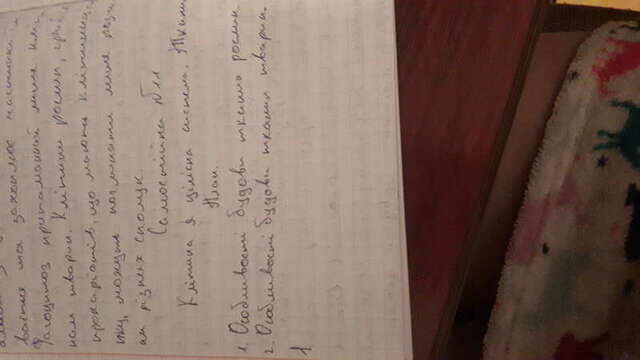 вається та захоплює частинки
Фагоцитоз притаманний лише кліт
нам тварин. Клітини рослин, грибів
прокаріотів, що мають клітинну
ку, можуть поглинати лише розчи
ни різних сполук.
Самостійна №11
Клітина я цілісна система. Ткани
План.
1. Особливості будови тканин рослин.
2. Особливості будови тканин тварин.
1